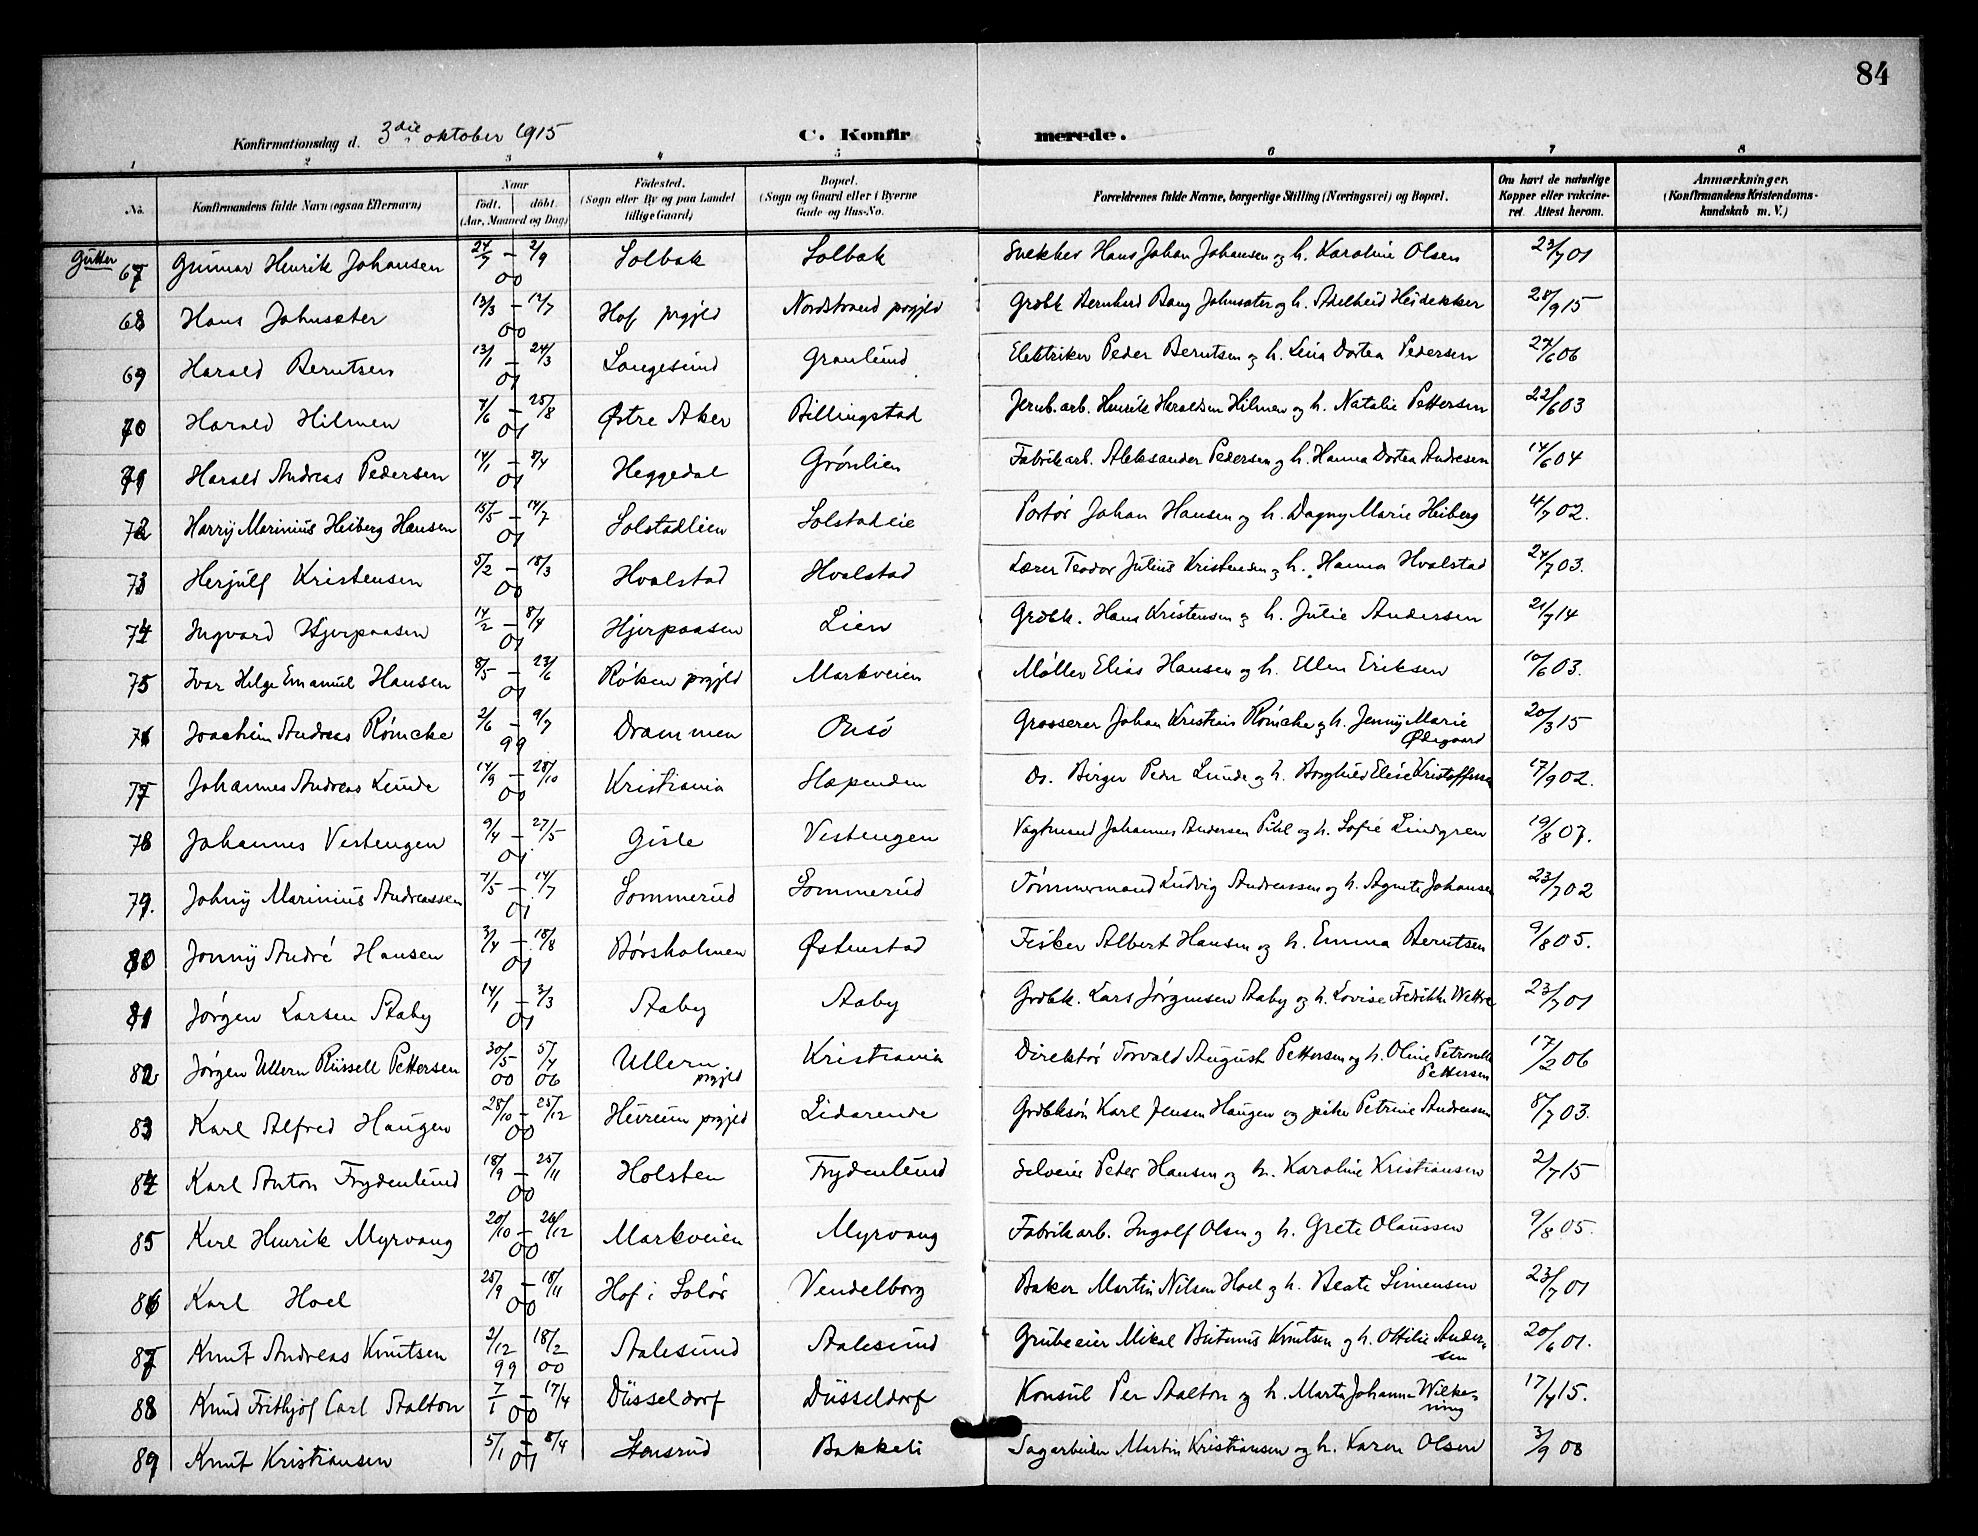 84
Konfirmationsdag d. 3die oktober 1915 C. Konfir merede.
1 2 3 4 5 6 7 8
No. Konfirmandens fulde Navn (ogsaa Efternavn) Naar født. døbt. (Aar, Maaned og Dag) Fødested. (Sogn eller By og paa Landet tillige Gaard) Bopæl. (Sogn og Gaard eller i Byerne Gade og Hus-No. Forældrenes fulde Navne, borgerlige Stilling (Næringsvei) og Bopæl. Om havt de naturlige Kopper eller vakcineret. Attest herom. Anmærkninger. (Konfirmandens Kristendomskundskab m. V.)
Gutter
67 Gunnar Henrik Johansen 24/7 – 2/9 00 Solbak Solbak Snekker Hans Johan Johansen og h. Karoline Olsen 23/7 01
68 Hans Johnsæter 13/3 – 12/7 00 Hof prgjld Nordstrand prgjld Grdbk Bernhard Bang Johnsæter og h. Adelheid Heidekker 28/9 15
69 Harald Berntsen 13/1 – 24/3 01 Langesund Granlund Elektriker Peder Berntsen og h. Lina Dortea Pedersen 27/6 06
70 Harald Hilmen 7/6 – 25/8 01 Østre Aker Billingstad Jernb.arb. Henrik Haraldsen Hilmen og h. Natalie Pettersen 22/6 03
71 Harald Andreas Pedersen 14/1 – 8/4 01 Heggedal Grønlien Fabrikarb. Aleksander Pedersen og h. Hanna Dortea Andresen 14/6 04
72 Harry Marinius Heiberg Hansen 15/5 – 14/7 01 Solstadlien Solstadlie Portør Johan Hansen og h. Dagny Marie Heiberg 4/7 02.
73 Herjulf Kristensen 5/2 – 18/3 00 Hvalstad Hvalstad Lærer Teodor Julius Kristensen og h. Hanna Hvalstad 24/7 03.
74 Ingvard Hjerpaasen 14/2 – 8/4 01 Hjerpaasen Lien Grdbk. Hans Kristensen og h. Julie Andersen 21/7 14
75 Ivar Helge Emanuel Hansen 8/5 – 23/6 01 Røken prgjld Markveien Møller Elias Hansen og h. Ellen Eriksen 10/6 03.
76 Joachim Andreas Römcke 2/6 – 9/7 99 Drammen Onsö Grosserer Johan Kristian Römcke og h. Jenny Marie Ødegaard 20/3 15
77 Johannes Andreas Lunde 14/9 – 28/10 00 Kristiania Slependen Do. Birger Peder Lunde og h. Borghild Elise Kristoffersen 17/9 02.
78 Johannes Vestengen 9/4 – 27/5 01 Gisle Vestengen Vagtmand Johannes Andersen Pihl og h. Sofie Lindgren 19/8 07.
79. Johny Marinius Andreassen 7/5 – 14/7 01 Sommerud Sommerud Tømmermand Ludvig Andreassen og h. Agnete Johansen 23/7 02
80 Jonny André Hansen 3/4 – 18/8 01 Børsholmen Østenstad Fisker Albert Hansen og h. Emma Berntsen 9/8 05.
81 Jørgen Larsen Aaby 14/1 – 3/3 01 Aaby Aaby Grdbk. Lars Jørgensen Aaby og h. Lovise Fedrikke Wettre 23/7 01
82 Jørgen Ullern Rüssell Pettersen 30/5 00 5/4 06 Ullern prgjld Kristiania Direktør Torvald August Pettersen og h. Oline Petronelle Pettersen 17/2 06
83 Karl Alfred Haugen 28/10 – 25/12 00 Heureum prgjeld Lidarende Grdbksøn Karl Jensen Haugen og pike Petrine Andreassen 8/7 03.
84 Karl Anton Frydenlund 18/9 – 25/11 00 Holsten Frydenlund Selveier Peter Hansen og h. Karoline Kristiansen 2/7 15
85 Karl Henrik Myrvang 20/10 – 26/12 00 Markveien Myrvang Fabrikarb. Ingolf Olsen og h. Grete Olaussen 9/8 05.
86 Karl Hoel 25/9 – 18/11 00 Hof i Solör Vendelborg Baker Martin Nilsen Hoel og h. Beate Simensen 23/7 01
87 Knut Andreas Knutsen 2/12 99 18/2 00 Aalesund Aalesund Grubeeier Mikal Knutsen og h. Ottilie Andersen 20/6 01.
88 Knud Frithjof Carl Aalton 7/1 – 17/4 00 Düsseldorf Düsseldorf Konsul Per Aalton og h. Marta Johanne Wilkening 17/4 15.
89 Knut Kristiansen 5/1 – 8/4 01 Stensrud Bakkeli Sagarbeider Martin Kristiansen og h. Karen Olsen 3/9 08